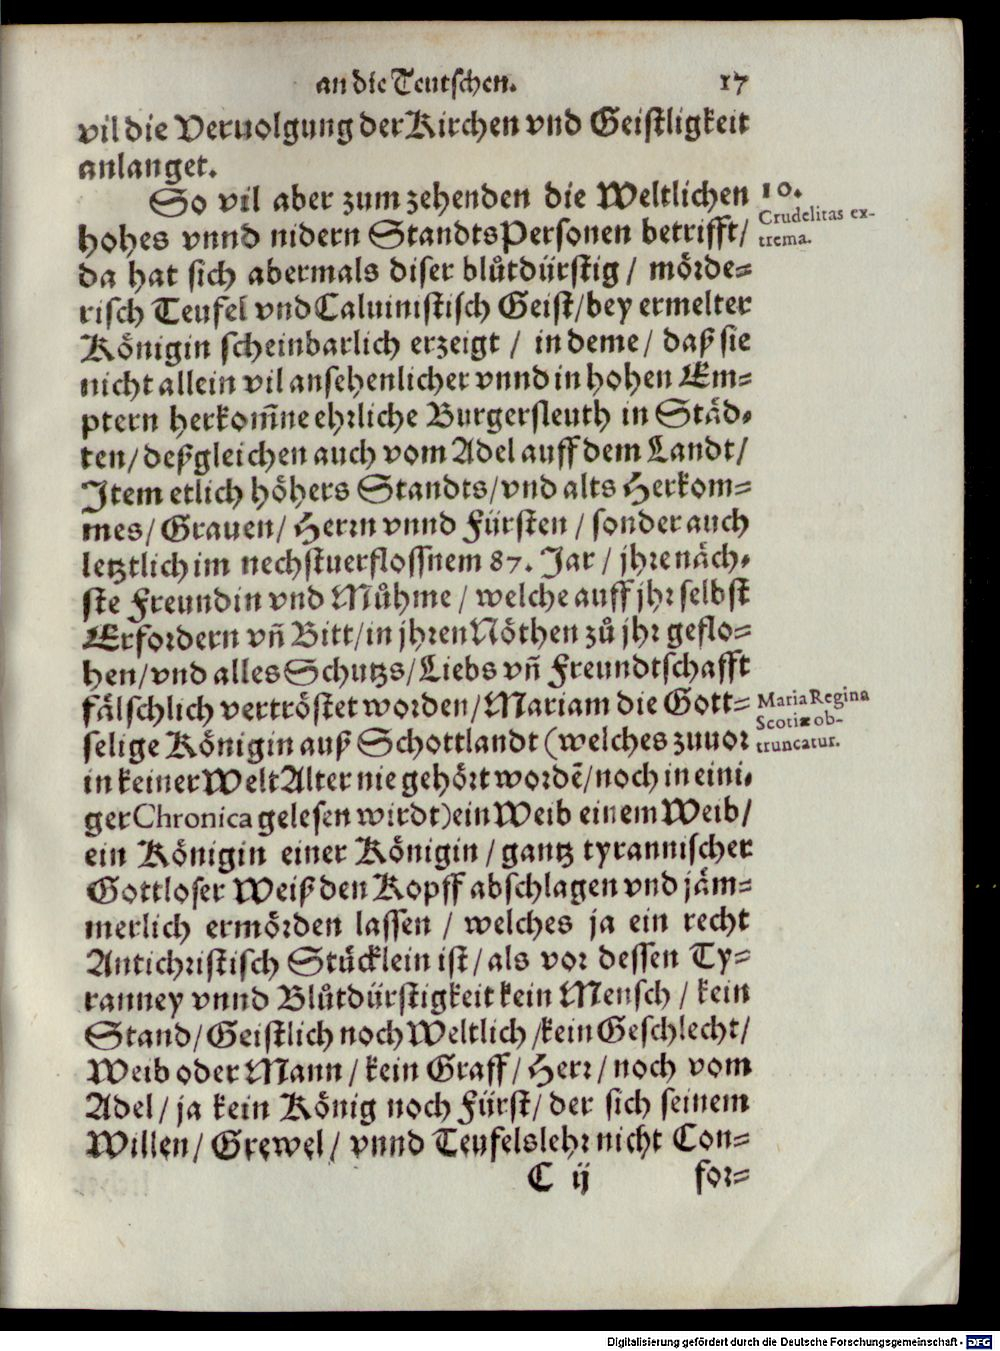 an die Teutschen. 17
vil die Veruolgung der Kirchen vnd Geistligkeit
anlanget.
So vil aber zum zehenden die Weltlichen
10.
hohes vnnd nidern StandtsPersonen betrifft/
Crudelitas ex-
trema.
da hat sich abermals diser blůtdürstig / mörde=
risch Teufel vnd Caluinistisch Geist/bey ermelter
Königin scheinbarlich erzeigt / in deme/ daß sie
nicht allein vil ansehenlicher vnnd in hohen Em=
ptern herkom̃ne ehrliche Burgersleuth in Städ=
ten/deßgleichen auch vom Adel auff dem Landt/
Item etlich höhers Standts/vnd alts Herkom=
mes/Grauen/Herrn vnnd Fürsten / sonder auch
letztlich im nechstuerflossnem 87. Jar / jhre näch=
ste Freundin vnd Můhme / welche auff jhr selbst
Erfordern vñ Bitt/in jhren Nöthen zů jhr geflo=
hen/vnd alles Schutzs/Liebs vñ Freundtschafft
fälschlich vertröstet worden/Mariam die Gott=
Maria Regina
Scotiæ ob-
truncatur.
selige Königin auß Schottlandt (welches zuuor
in keiner Welt Alter nie gehört wordẽ/noch in eini=
ger Chronica gelesen wirdt)ein Weib einem Weib/
ein Königin einer Königin / gantz tyrannischer
Gottloser Weiß den Kopff abschlagen vnd jäm=
merlich ermörden lassen / welches ja ein recht
Antichristisch Stücklein ist/als vor dessen Ty=
ranney vnnd Blůtdürstigkeit kein Mensch / kein
Stand/Geistlich noch Weltlich/kein Geschlecht/
Weib oder Mann / kein Graff/ Herr/noch vom
Adel/ja kein König noch Fürst/der sich seinem
Willen/ Grewel/ vnnd Teufelslehr nicht Con=
C ij for=
Digitalisierung gefördert durch die Deutsche Forschungsgemeinschaft - DFG